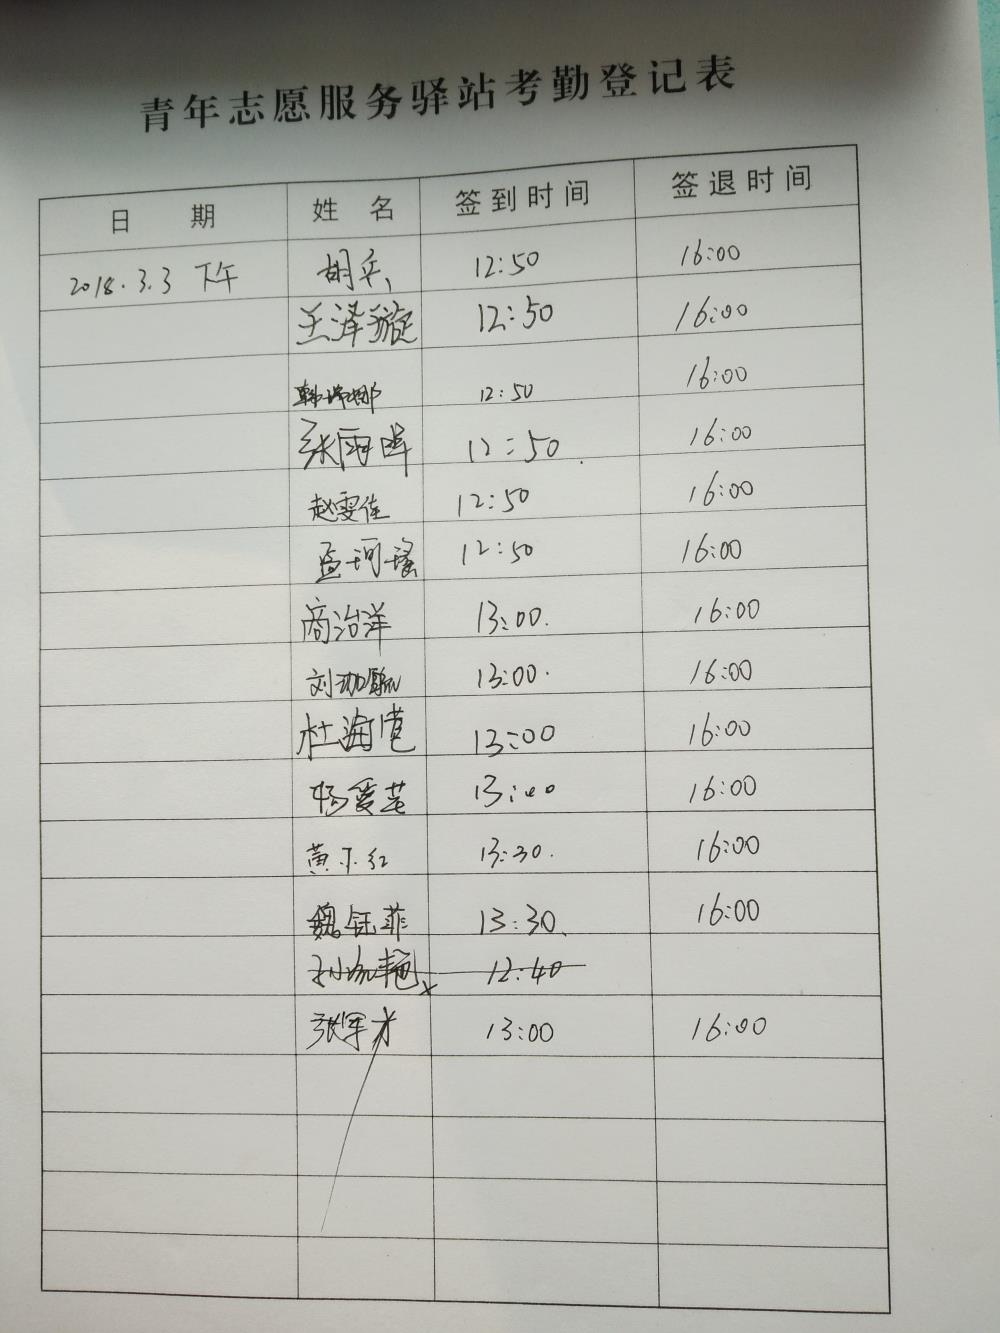 青年志愿服务驿站考勤登记表
日 期 姓 名 签到时间 签退时间
2018.3.3 下午 胡兵 12:50 16:00
王泽璇 12:50 16:00
韩瑞娜 12:50 16:00
张雨晖 12:50 16:00
赵雯佳 12:50 16:00
孟珂瑶 12:50 16:00
商治洋 13:00. 16:00
刘珈 13:00. 16:00
杜海港 13:00 16:00
杨爱芸 13:00 16:00
黄 红 13:30. 16:00
魏钰菲 13:30 16:00
孙 艳 12:40
张军才 13:00 16:00